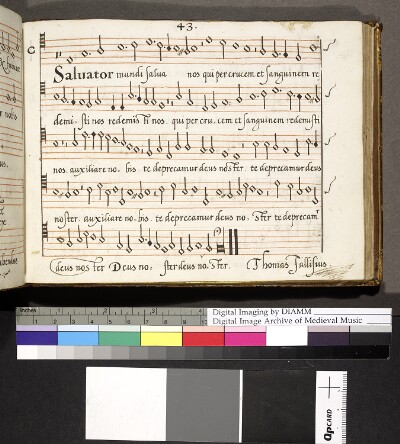 43.
Saluator mundi salua nos qui per crucem et sanguinem re
demi- sti nos redemisti nos. qui per cru. cem et sanguinem redemisti
nos. auxiliare no- bis te deprecamur deus noster. te deprecamur deus
noster. auxiliare no- bis te deprecamur deus no- ster te deprecamr
deus noster Deus no- ster deus no. ster. Thomas Tallisius.
inches
Digital Imaging by DIAMM
Digital Image Archive of Medieval Music
QPCARD